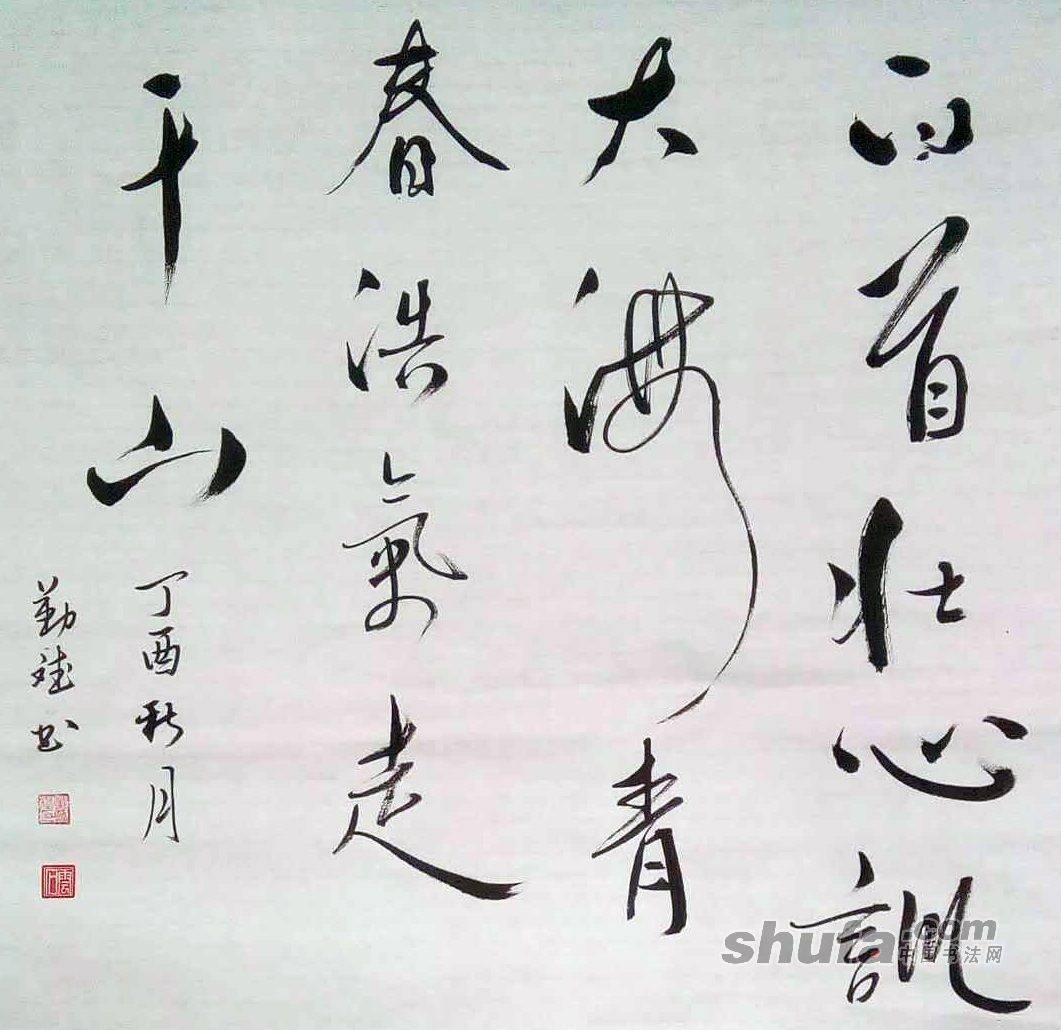 白首壮心訓
大海青
春浩氣走
千山
丁酉秋月
勤 书
shufa.com
中国书法网